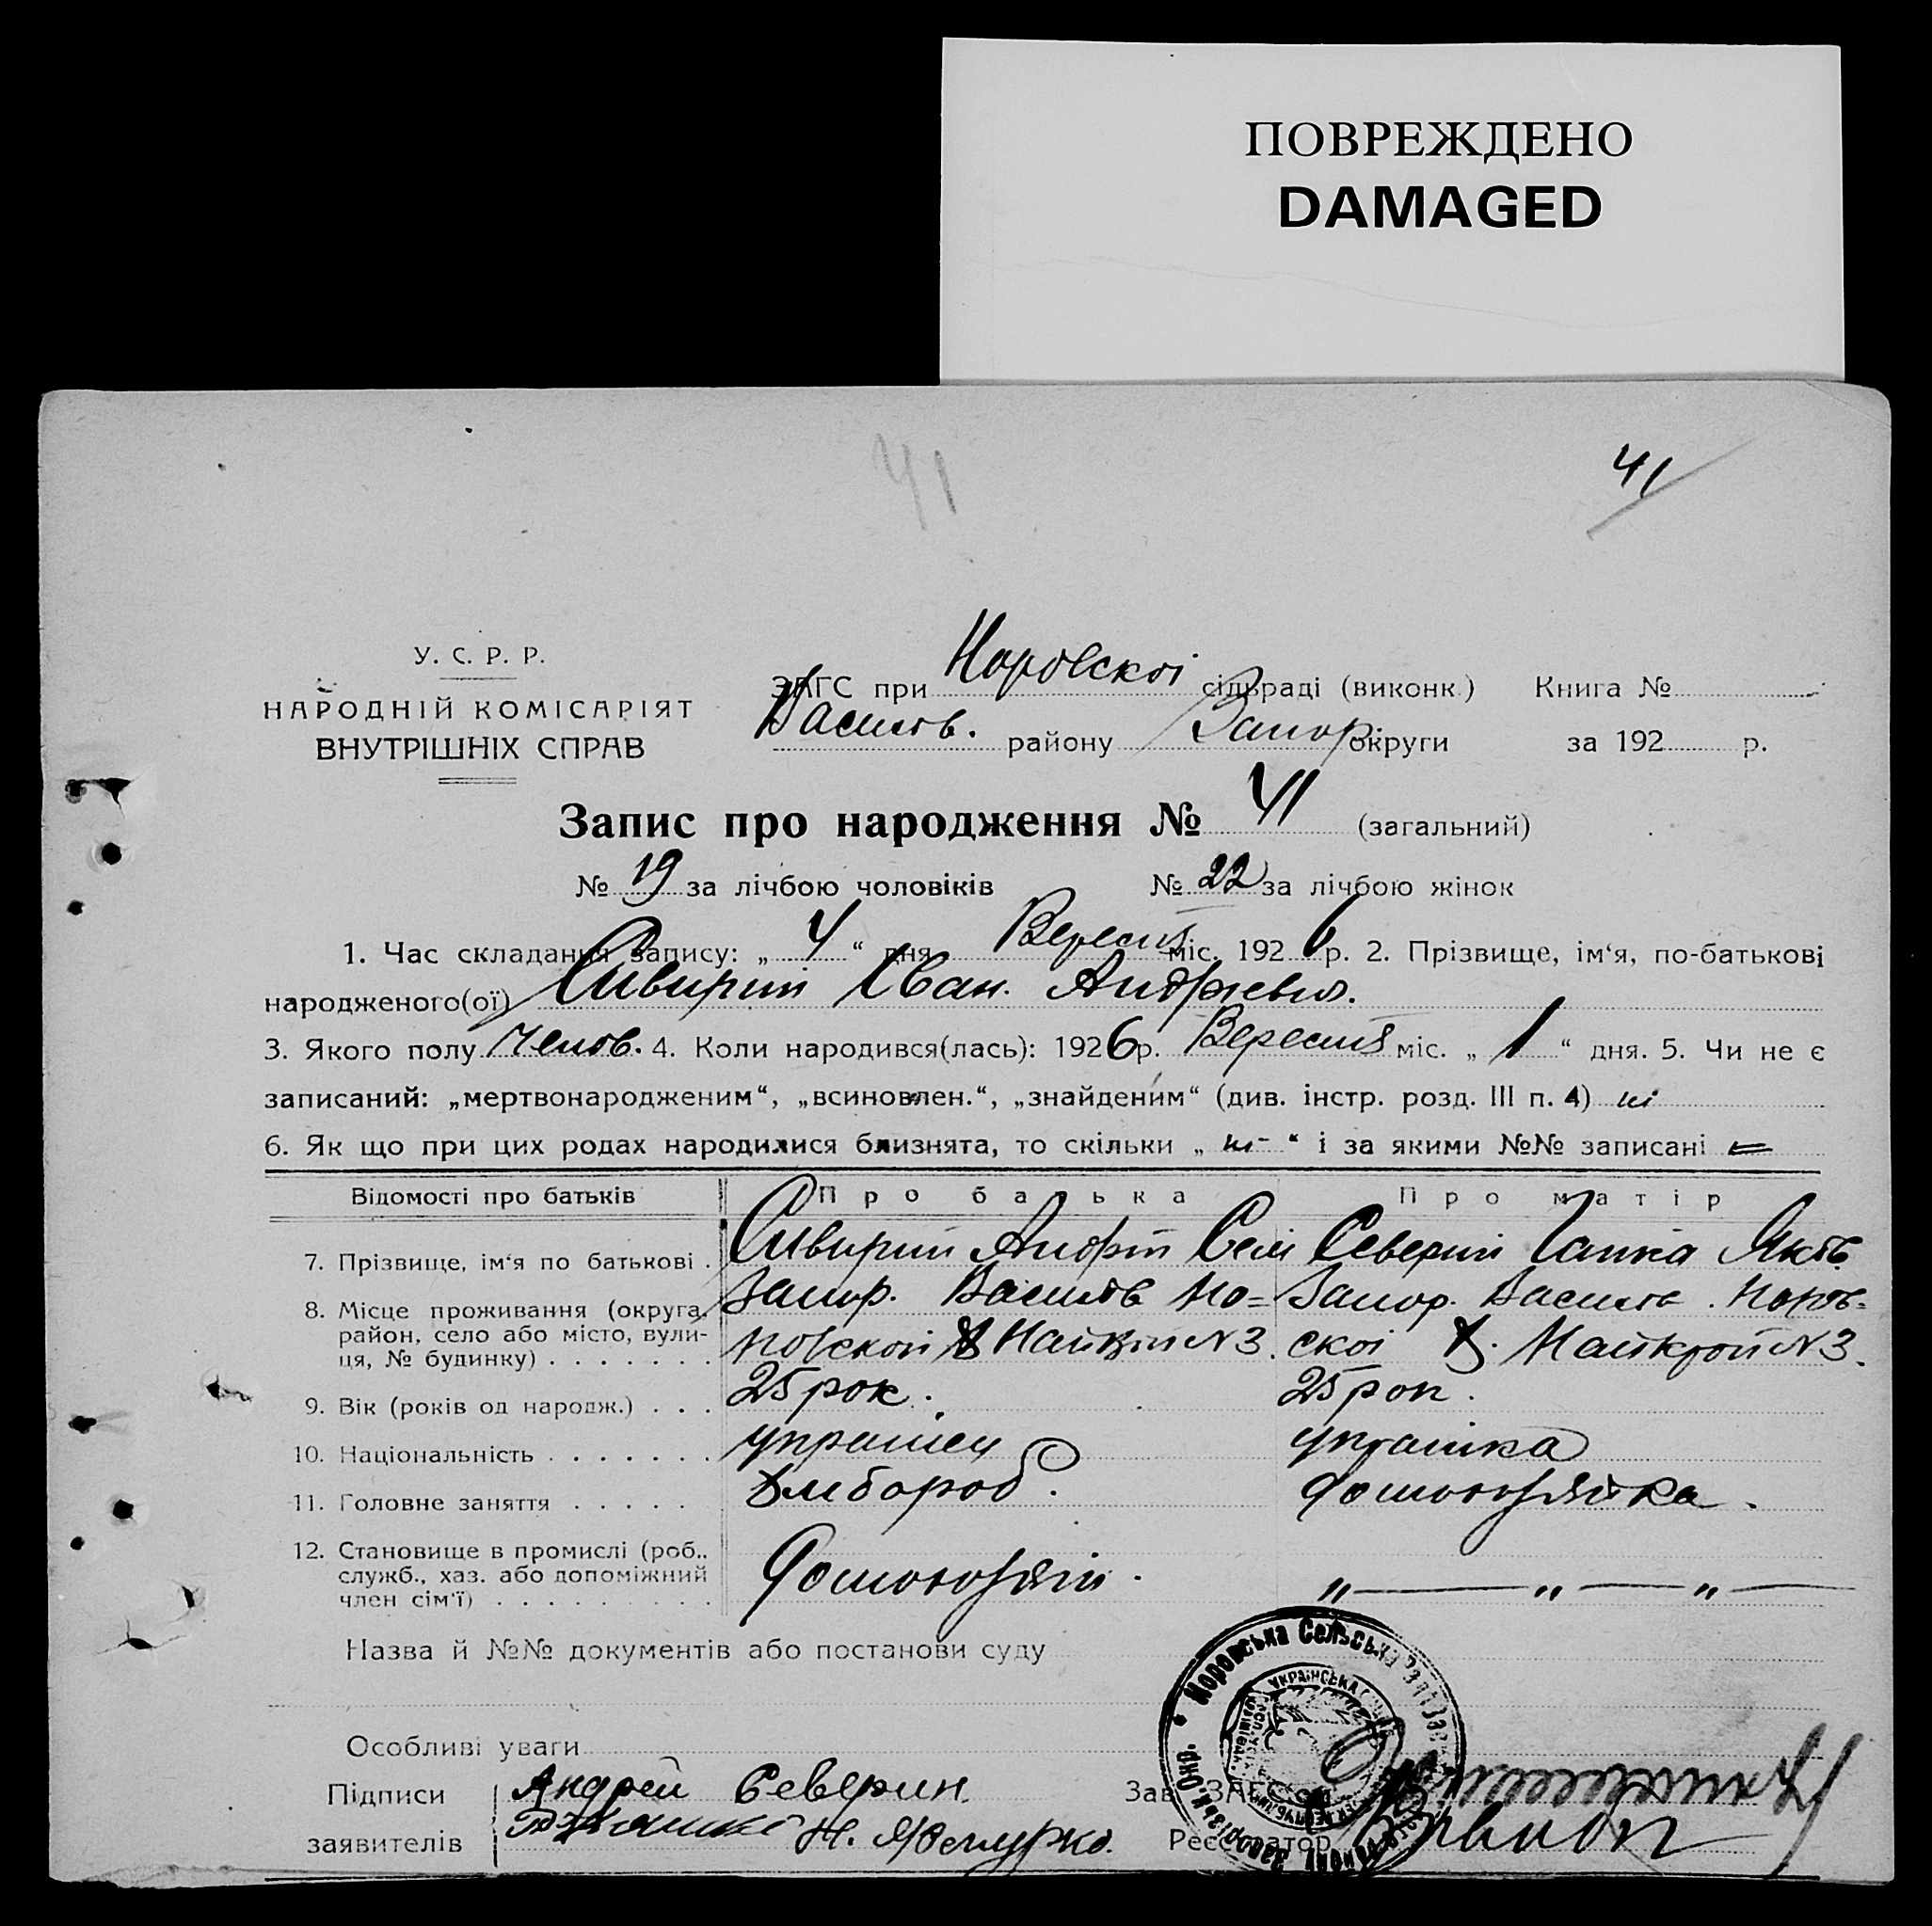 ПОВРЕЖДЕНО
DAMAGED
41
41
У. С. Р. Р.
НАРОДНІЙ КОМІСАРІЯТ
ВНУТРІШНІХ СПРАВ
ЗАГС при Норовскої сільраді (виконк.) Книга №
Василів. району Запор. округи за 192 р.
Запис про народження № 41 (загальний)
№ 19 за лічбою чоловіків № 22 за лічбою жінок
1. Час складання запису: „ 4 “ дня Вересня міс. 1926 р. 2. Прізвище, ім‘я, по-батькові
народженого(ої) Сивирин Іван Андрієвич.
3. Якого полу Чолов. 4. Коли народився(лась): 1926 р. Вересня міс. „ 1 “ дня. 5. Чи не є
записаний: „мертвонародженим“, „всиновлен.“, „знайденим“ (див. інстр. розд. III п. 4) ні
6. Як що при цих родах народилися близнята, то скільки „ ні “ і за якими №№ записані
Відомості про батьків Про батька Про матір
7. Прізвище, ім‘я по батькові . Сивирин Андрій Северин Ганна Яков
8. Місце проживання (округа, Запор. Василів Запор. Василів.
район, село або місто, вули-
ця, № будинку) . . . . . . . N 3. скої N 3.
9. Вік (років од народж.) . . . 25 рок. 25 рок.
10. Національність . . . . . . . українец українка
11. Головне заняття . . . . . Хлібороб.
12. Становище в промислі (роб..
служб., хаз. або допоміжний
член сім‘ї) . . . . . . . . . „ — „ — „ —
Назва й №№ документів або постанови суду
Особливі уваги
Підписи Андрей Северин. Зав. ЗАГС‘ом
заявителів Н. Реєстратор
Норовська Сельська
УКРАЇНСЬКА